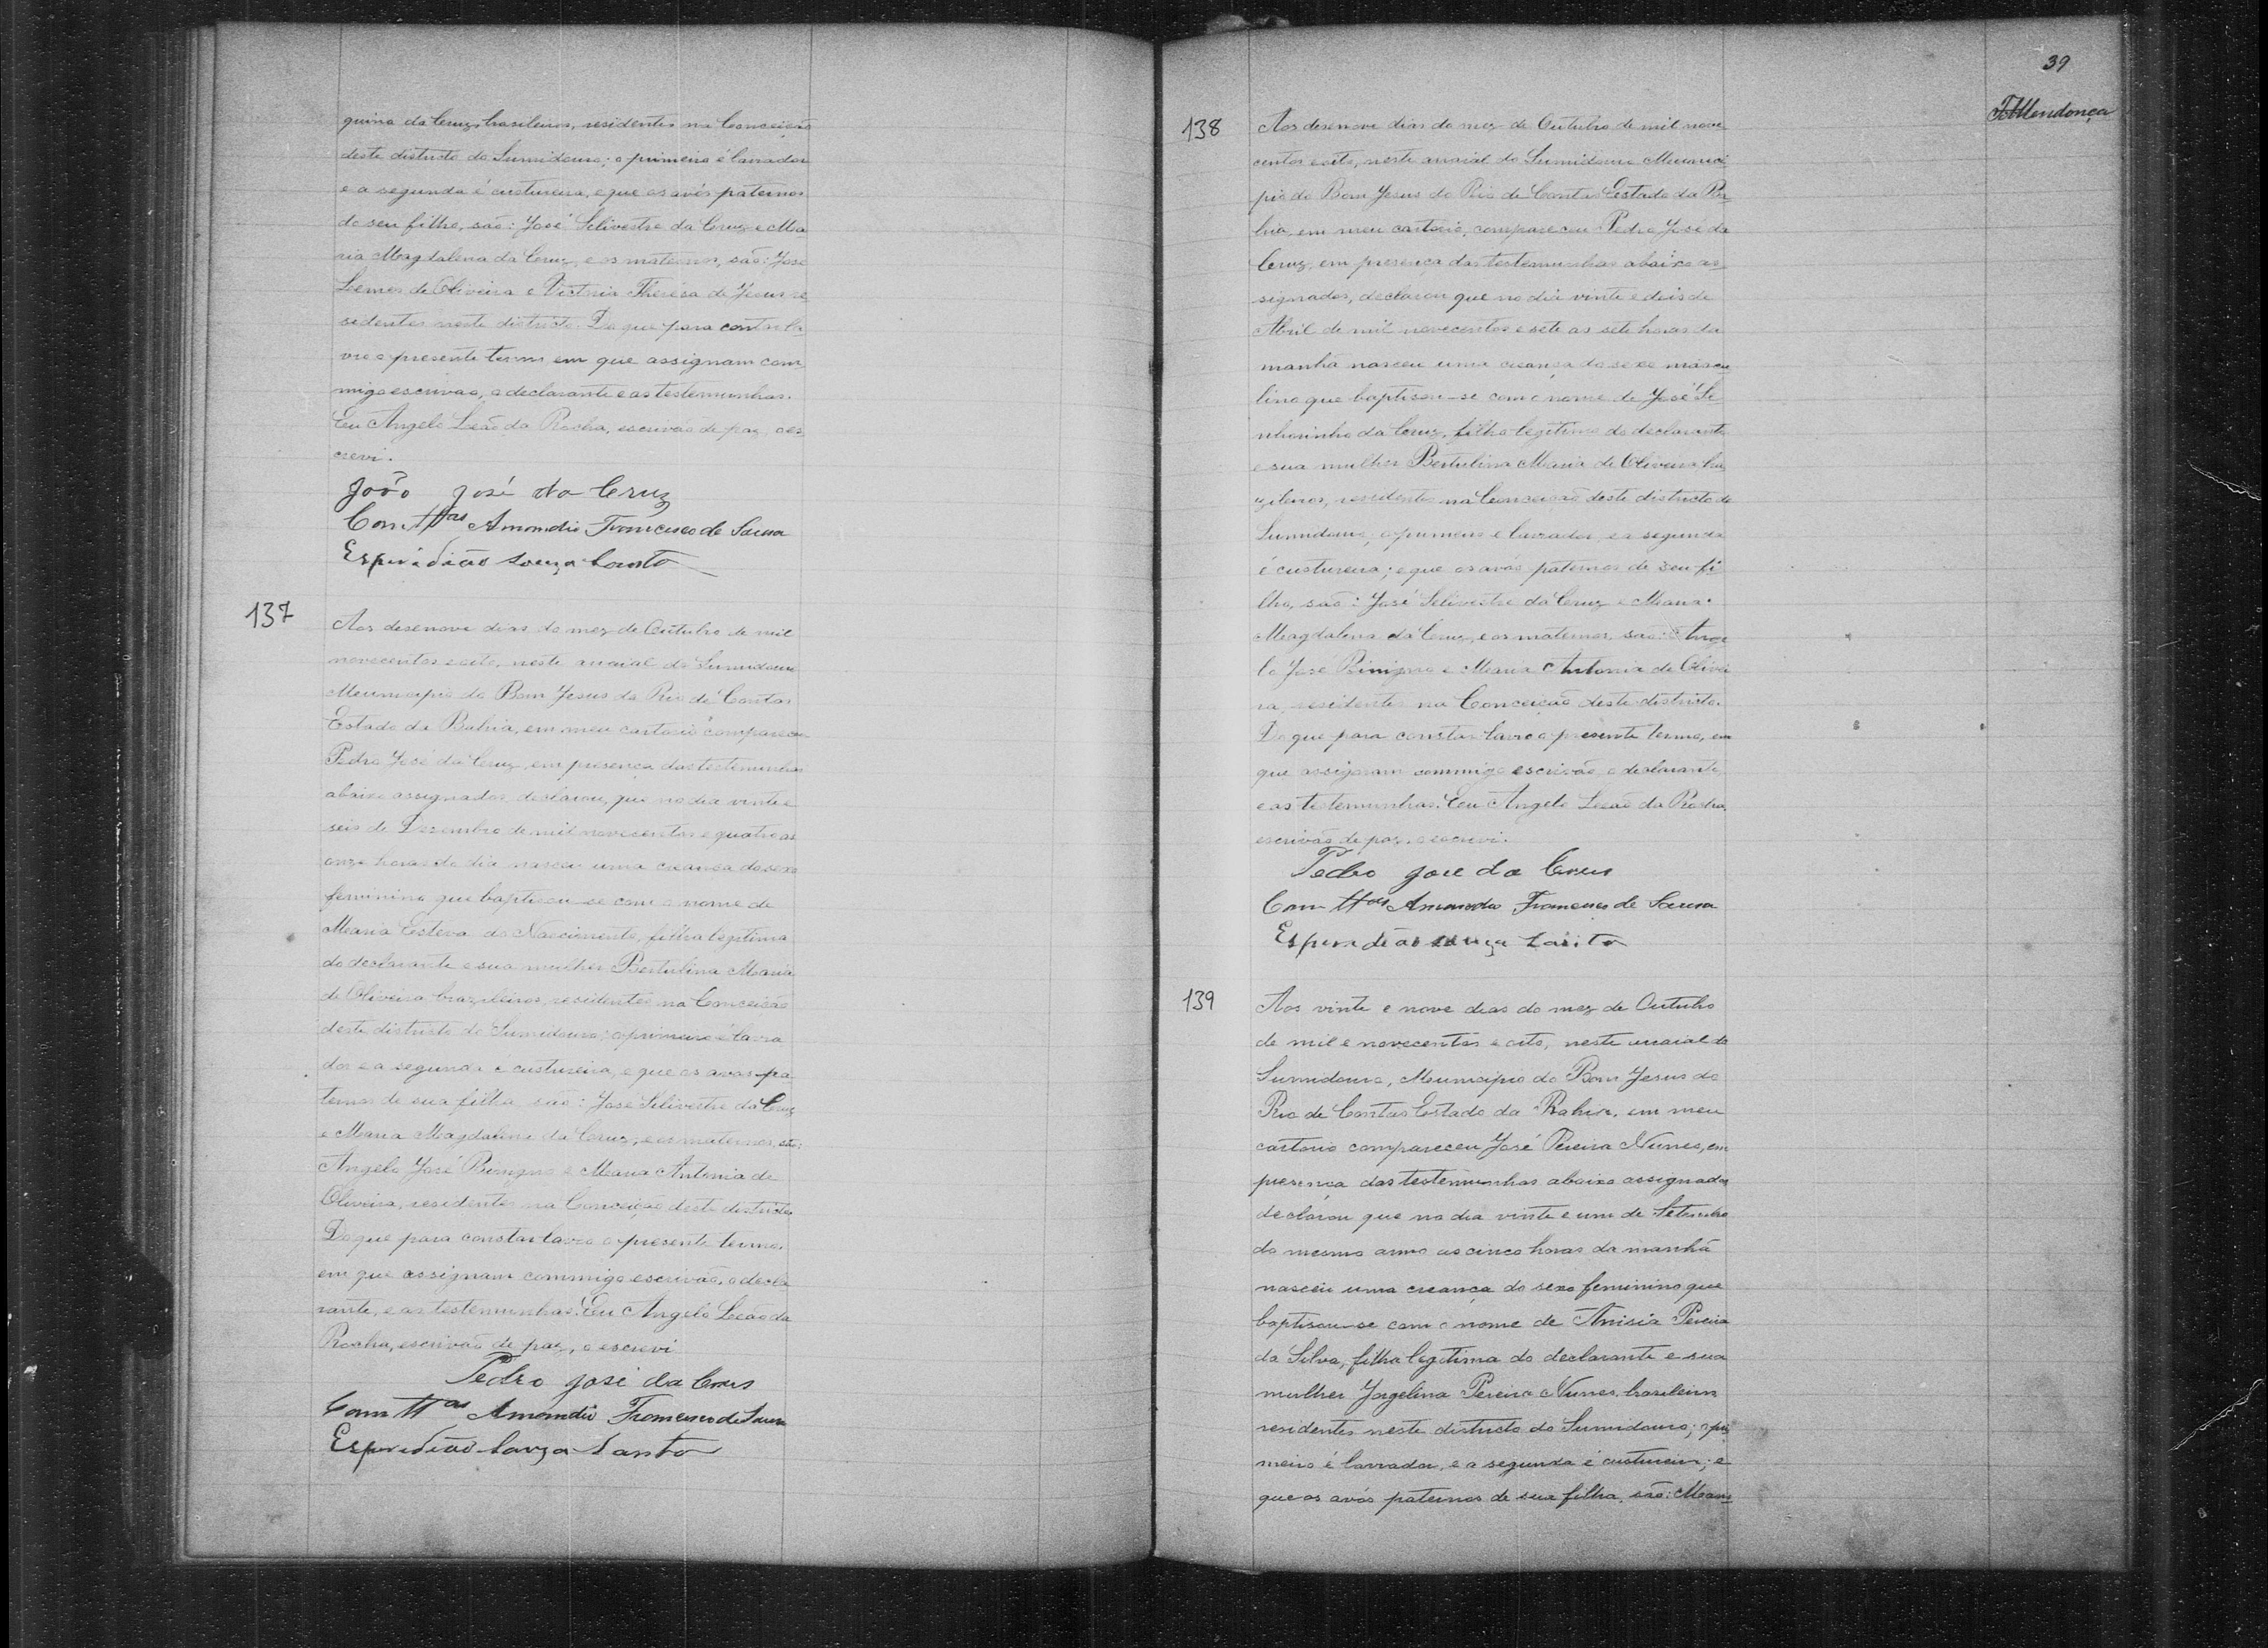 quina da Cruz, brasileiros, residentes na Conceição
deste districto do Sumidouro; o primeiro é lavrador
e a segunda é custureira, e que os avós paternos
do seu filho, são: José Silivestre da Cruz e Ma
ria Magdalena da Cruz, e os maternos, são: José
Lemos de Oliveira e Victoria Theresa de Jesus re
sidentes neste districto. Do que para constar la
vro o presente termo em que assignam com
migo escrivão, o declarante e as testemunhas.
Eu Angelo Leão da Rocha, escrivão de paz, o es
crevi.
João José da Cruz
Com ttas Amandio Francisco de Sousa
Esperidião Souza Santo
137
Aos desenove dias do mez de Outubro de mil
novecentos e oito, neste arraial do Sumidouro
Municipio do Bom Jesus do Rio de Contas
Estado da Bahia, em meu cartorio compareceu
Pedro José da Cruz, em presença das testemunhas
abaixo assignadas, declarou, que no dia vinte e
seis de Dezembro de mil novecentos e quatro as
onze horas do dia nasceu uma creança do sexo
feminino que baptisou-se com o nome de
Maria Esteva do Nascimento, filha legitima
do declarante e sua mulher Bertulina Maria
de Oliveira brazileiros, residentes na Conceição
deste districto do Sumidouro; o primeiro é lavra
dor e a segunda é custureira, e que os avos pa
ternos de sua filha são: José Silivestre da Cruz
e Maria Magdalena da Cruz, e os maternos, são:
Angelo José Binigno e Maria Antonia de
Oliveira, residentes na Conceição deste districto
Do que para constar lavro o presente termo,
em que assignam commigo escrivão, o decla
rante, e as testemunhas. Eu Angelo Leão da
Rocha, escrivão de paz, o escrevi
Pedro José da Crus
Com ttas Amandio Francisco de Sousa
Esperidião Souza Santo
39
138
Aos desenove dias do mez de Outubro de mil nove
centos e oito, neste arraial do Sumidouro Munici
pio do Bom Jesus do Rio de Contas Estado da Ba
hia, em meu cartorio, compareceu Pedro José da
Cruz, em presença das testemunhas abaixo as
signados, declarou que no dia vinte e dois de
Abril de mil novecentos e sete as sete horas da
manhã nasceu uma creança do sexo mascu
lino que baptisou-se com o nome de José Se
nhorinho da Cruz, filho legitimo do declarante
e sua mulher Bertulina Maria de Oliveira bra
zileiros, residentes na Conceição deste districto do
Sumidouro; o primeiro é lavrador, e a segunda
é custureira; e que os avós paternos de seu fi
lho, são: José Silivestre da Cruz e Maria
Magdalena da Cruz, e os maternos, são: Ange
lo José Binigno e Maria Antonia de Olivei
ra, residentes na Conceição deste districto.
Do que para constar lavro o presente termo, em
que assignam commigo escrivão, o declarante,
e as testemunhas. Eu Angelo Leão da Rocha,
escrivão de paz, o escrevi.
Pedro José da Crus
Com ttas Amandio Francisco de Sousa
Esperidião Souza Santo
139
Aos vinte e nove dias do mez de Outubro
de mil e novecentos e oito, neste arraial do
Sumidouro, Municipio do Bom Jesus do
Rio de Contas Estado da Bahia, em meu
cartorio compareceu José Pereira Nunes, em
presença das testemunhas abaixo assignadas
declarou que no dia vinte e um de Setembro
do mesmo anno as cinco horas da manhã
nasceu uma creança do sexo feminino que
baptisou-se com o nome de Anisia Pereira
da Silva, filha legitima do declarante e sua
mulher Jorgelina Pereira Nunes, brasileiros
residentes neste districto do Sumidouro; o pri
meiro é lavrador, e a segunda é custureira; e
que os avós paternos de sua filha, são: Mano